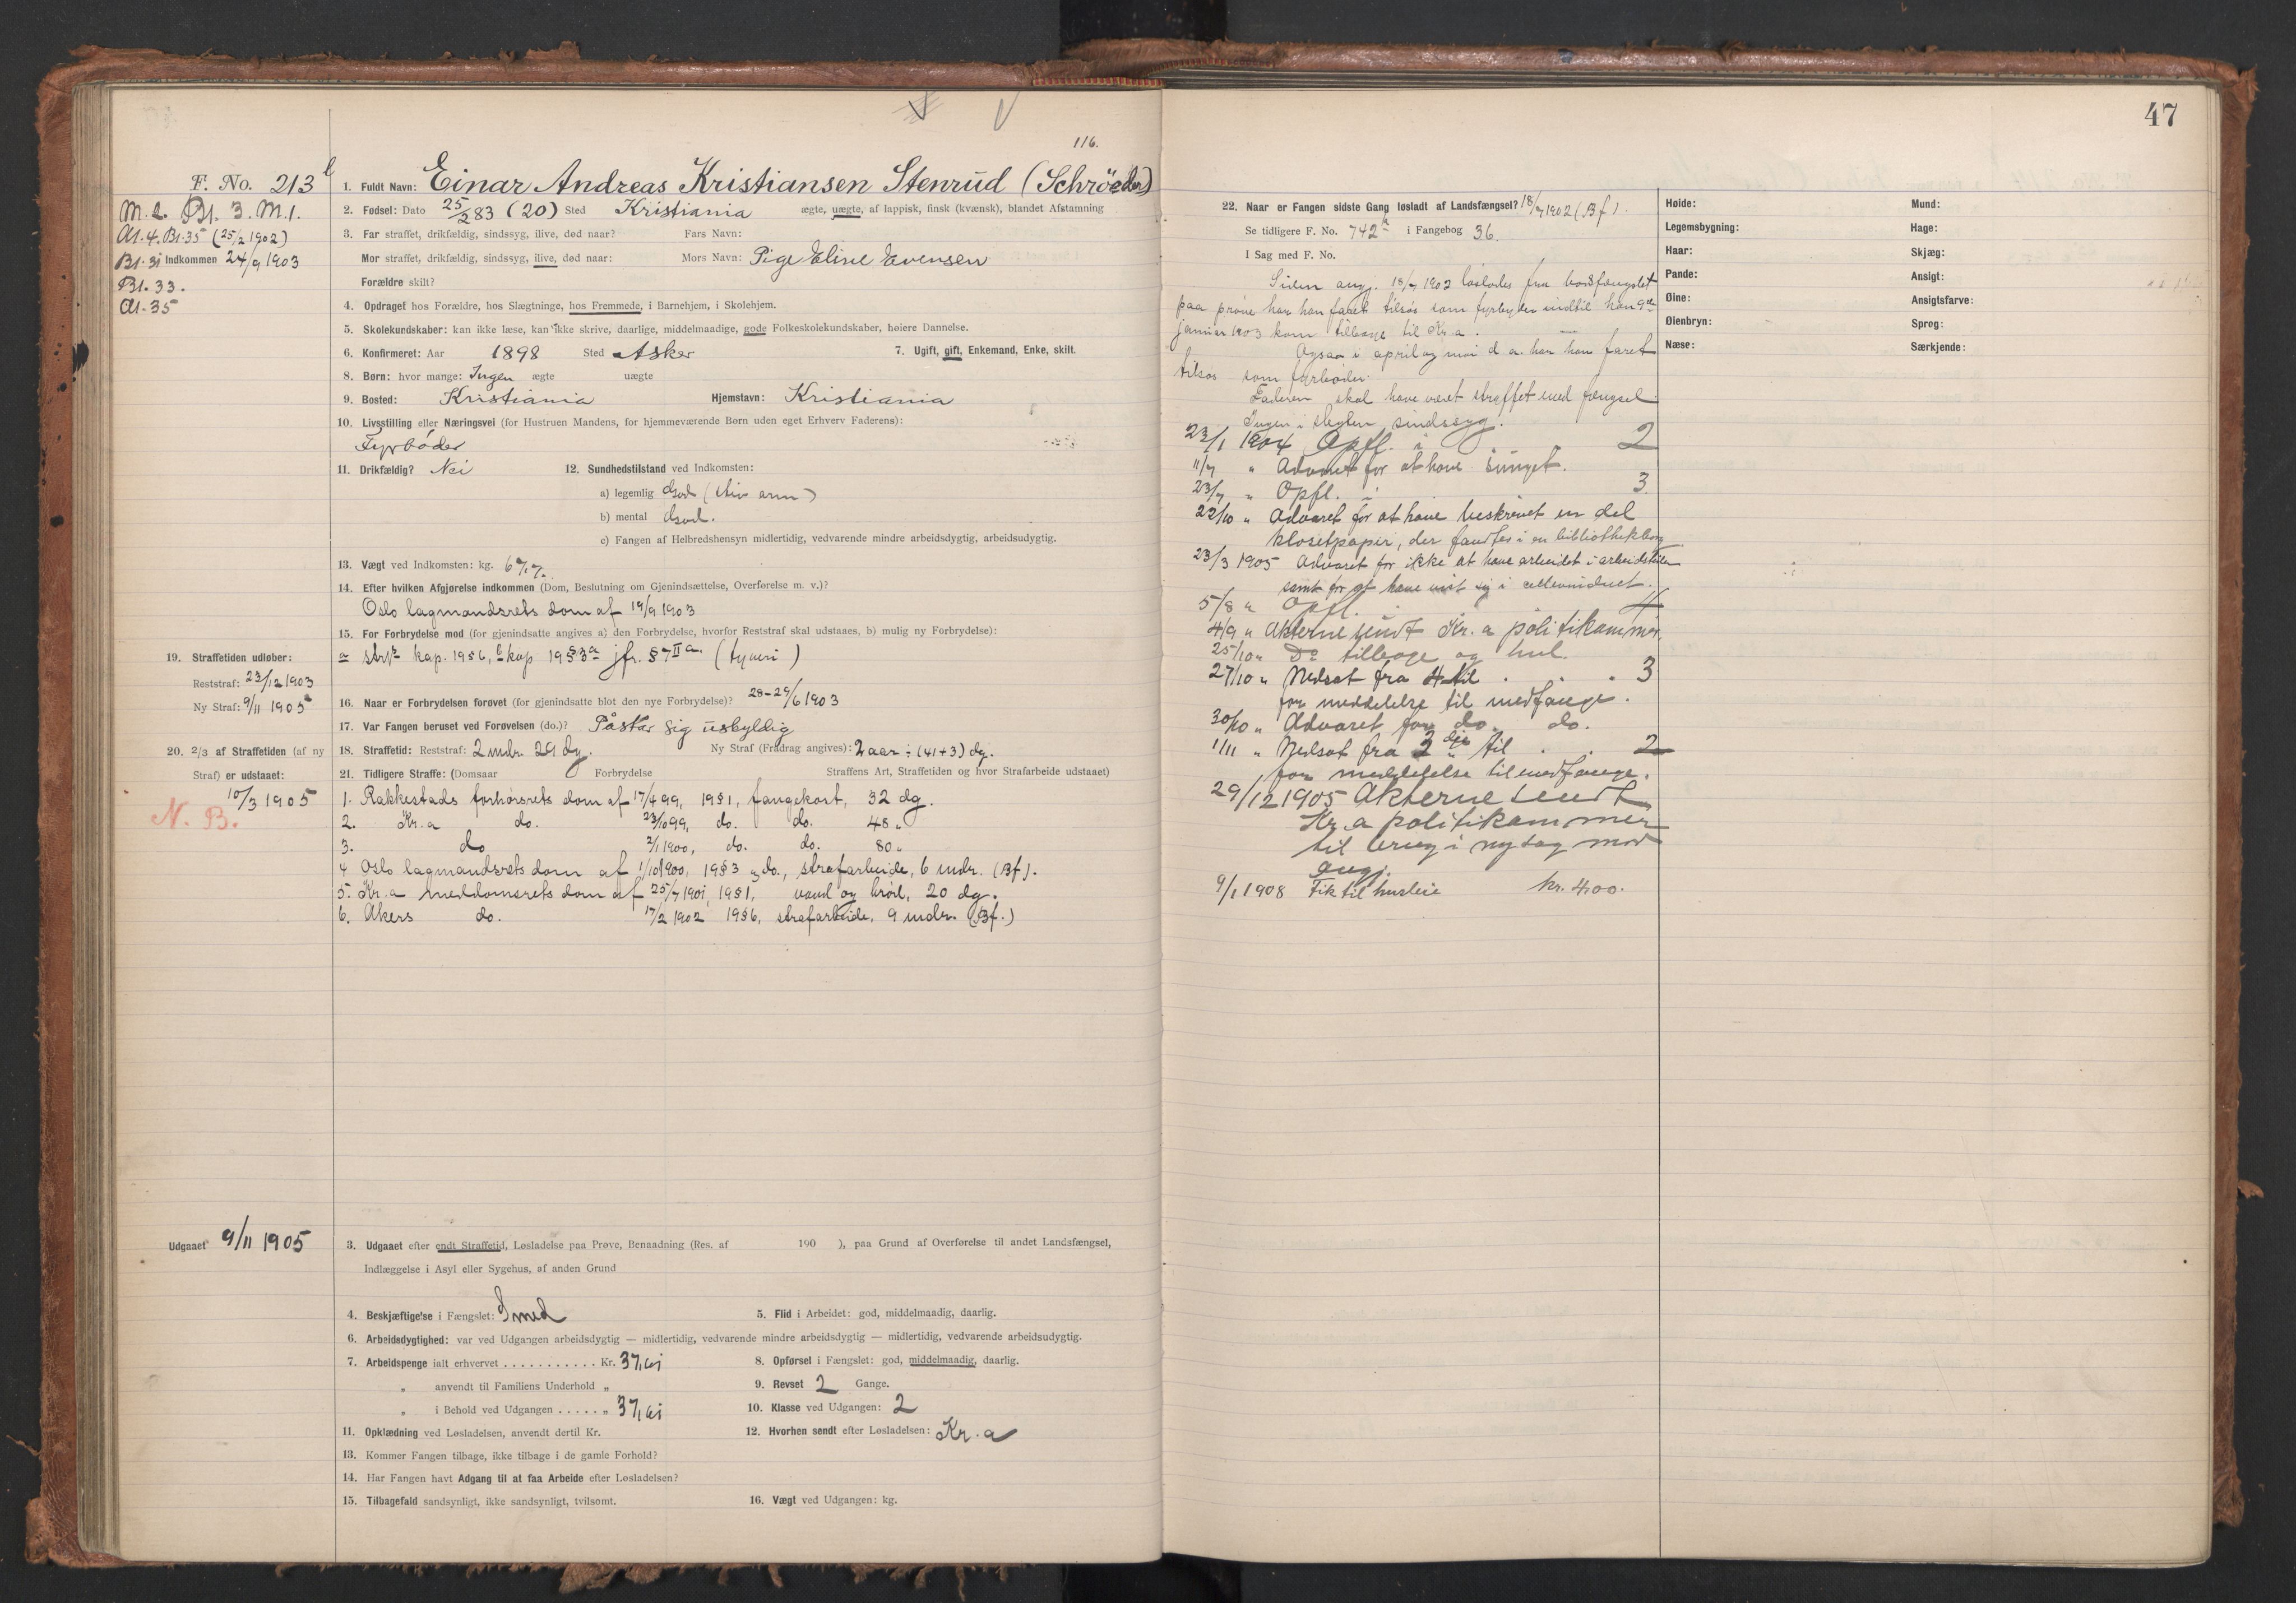 116.
F. No. 213 b
M. 2. Bl. 3. M. 1.
Al. 4. Bl. 35 (25/2 1902)
Bl. 31 Indkommen 24/9 1903
Bl. 33.
Al. 35
1. Fuldt Navn: Einar Andreas Kristiansen Stenrud (Schröeder)
2. Fødsel: Dato 25/2 83 (20) Sted Kristiania ægte, uægte, af lappisk, finsk (kvænsk), blandet Afstamning
3. Far straffet, drikfældig, sindssyg, ilive, død naar? Fars Navn:
Mor straffet, drikfældig, sindssyg, ilive, død naar: Mors Navn: Pige Eline Evensen
Forældre skilt?
4. Opdraget hos Forældre, hos Slægtninge, hos Fremmede, i Barnehjem, i Skolehjem.
5. Skolekundskaber: kan ikke læse, kan ikke skrive, daarlige, middelmaadige, gode Folkeskolekundskaber, høiere Dannelse.
6. Konfirmeret: Aar 1898 Sted Asker 7. Ugift, gift, Enkemand, Enke, skilt.
8. Børn: hvor mange: Ingen ægte uægte
9. Bosted: Kristiania Hjemstavn: Kristiania
10. Livsstilling eller Næringsvei (for Hustruen Mandens, for hjemmeværende Børn uden eget Erhverv Faderens):
Fyrbøder
11. Drikfældig? Nei 12. Sundhedstilstand ved Indkomsten:
a) legemlig God (stiv arm)
b) mental God.
c) Fangen af Helbredshensyn midlertidig, vedvarende mindre arbeidsdygtig, arbeidsudygtig.
13. Vægt ved Indkomsten: kg.
14. Efter hvilken Afgjørelse indkommen (Dom, Beslutning om Gjenindsættelse, Overførelse m. v.)?
Oslo lagmandsrets dom af 19/9 1903
15. For Forbrydelse mod (for gjenindsatte angives a) den Forbrydelse, hvorfor Reststraf skal udstaaes, b) mulig ny Forbrydelse):
a strfl. kap. 19 § 6, b kap 19 § 3 a jfr. § 7 II a. (tyveri)
19. Straffetiden udløber:
Reststraf: 23/12 1903
Ny Straf: 9/11 1905
16. Naar er Forbrydelsen forøvet (for gjenindsatte blot den nye Forbrydelse)? 28-29/6 1903
17. Var Fangen beruset ved Forøvelsen (do.)? Påstår sig uskyldig
20. 2/3 af Straffetiden (af ny Straf) er udstaaet:
10/3 1905
N. B.
18. Straffetid: Reststraf: 2 mdr. 29 dg. Ny Straf (Fradrag angives): 2 aar ÷ (41+3) dg.
21. Tidligere Straffe: (Domsaar Forbrydelse Straffens Art, Straffetiden og hvor Strafarbeide udstaaet)
1. Rakkestads forhørsrets dom af 17/4 99, 19 § 1, fangekost, 32 dg.
2. Kr.a do. 23/10 99, do. do. 48 "
3. do 2/1 1900, do. do. 80 "
4 Oslo lagmandsrets dom af 1/10 1900, 19 § 3 do., strafarbeide, 6 mdr. (Bf).
5. Kr.a meddomsrets dom af 25/7 1901, 19 § 1, vand og brød, 20 dg.
6. Akers do. 17/2 1902 19 § 6, strafarbeide, 9 mdr. (Bf.)
Udgaaet 9/11 1905
3. Udgaaet efter endt Straffetid, Løsladelse paa Prøve, Benaadning (Res. af 190 ), paa Grund af Overførelse til andet Landsfængsel,
Indlæggelse i Asyl eller Sygehus, af anden Grund
4. Beskjæftigelse i Fængslet: Smed 5. Flid i Arbeidet: god, middelmaadig, daarlig.
6. Arbeidsdygtighed: var ved Udgangen arbeidsdygtig — midlertidig, vedvarende mindre arbeidsdygtig — midlertidig, vedvarende arbeidsudygtig.
7. Arbeidspenge ialt erhvervet . . . . . . . . . . . Kr. 37,61 8. Opførsel i Fængslet: god, middelmaadig, daarlig.
" anvendt til Familiens Underhold " 9. Revset 2 Gange.
" i Behold ved Udgangen . . . . . " 37,61 10. Klasse ved Udgangen: 2
11. Opklædning ved Løsladelsen, anvendt dertil Kr. 12. Hvorhen sendt efter Løsladelsen: Kr.a
13. Kommer Fangen tilbage, ikke tilbage i de gamle Forhold?
14. Har Fangen havt Adgang til at faa Arbeide efter Løsladelsen?
15. Tilbagefald sandsynligt, ikke sandsynligt, tvilsomt. 16. Vægt ved Udgangen: kg.
47
22. Naar er Fangen sidste Gang løsladt af Landsfængsel? 18/7 1902 (Bf).
Se tidligere F. No. 742 a i Fangebog 36.
I Sag med F. No.
Siden angj. 18/7 1902 løslodes fra bodsfængslet
paa prøve har han faret tilsøs som fyrbøder indtil han 9de
januar 1903 kom tilbage til Kr.a.
Ogsaa i april og mai d.a. har han faret
tilsøs som fyrbøder.
Faderen skal have været straffet med fængsel.
Ingen i slegten sindssyg.
23/1 1904 Opfl. i 2
11/7 " Advaret for at have sunget.
23/7 " Opfl. i 3
22/10 " Advaret for at have beskrevet en del
klosetpapir, der fandtes i en bibliothekbog
23/3 1905 Advaret for ikke at have arbeidet i arbeidstiden
samt for at have vist sig i cellevinduet.
5/8 " Opfl. i 4
4/9 " Akterne sendt Kr.a politikammer.
25/10 " Do tilbage og hul.
27/10 " Nedsat fra 4 til . . . 3
for meddelelse til medfange.
30/10 " Advaret for do. do.
1/11 " Nedsat fra 3 dje til . . 2
for meddelelse til medfange.
29/12 1905 Akterne sendt
Kr.a politikammer
til brug i ny sag mod
angj.
9/1 1908 Fik til husleie kr. 4,00.
Høide: Mund:
Legemsbygning: Hage:
Haar: Skjæg:
Pande: Ansigt:
Øine: Ansigtsfarve:
Øienbryn: Sprog:
Næse: Særkjende: